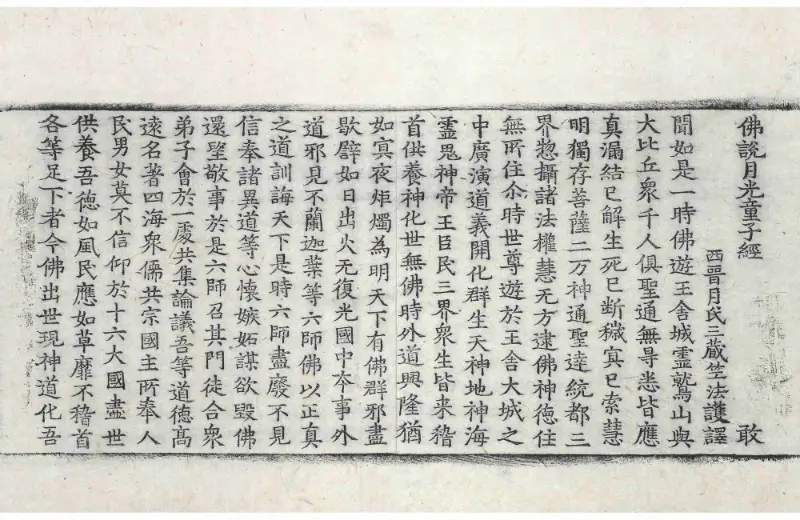 佛說月光童子經 敢
西晉月氏三藏竺法護譯
聞如是一時佛遊王舍城靈鷲山與
大比丘衆千人俱聖通無㝵悉皆應
真漏結已解生死已断穢㝠已索慧
明獨存菩薩二万神通聖達統都三
界惣攝諸法權慧无方逮佛神德住
無所住尒時世尊遊於王舍大城之
中廣演道義開化群生天神地神海
靈鬼神帝王臣民三界衆生皆来稽
首供養神化世無佛時外道興隆猶
如㝠夜炬燭為明天下有佛群邪盡
歇譬如日出火无復光國中夲事外
道邪見不蘭迦葉等六師佛以正真
之道訓誨天下是時六師盡廢不見
信奉諸異道等心懷嫉妬謀欲毀佛
還望敬事於是六師召其門徒合衆
弟子會於一處共集論議吾等道德髙
遠名著四海衆儒共宗國主所奉人
民男女莫不信仰於十六大國盡世
供養吾德如風民應如草靡不稽首
各等足下者今佛出世現神道化吾